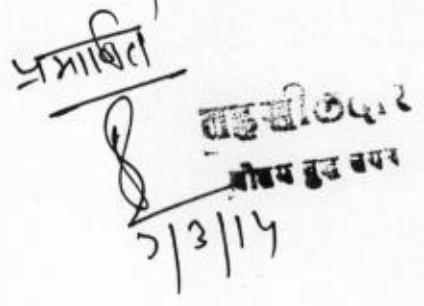 प्रमाणित
तहसीलदार
गौतम बुद्ध नगर
7/3/14